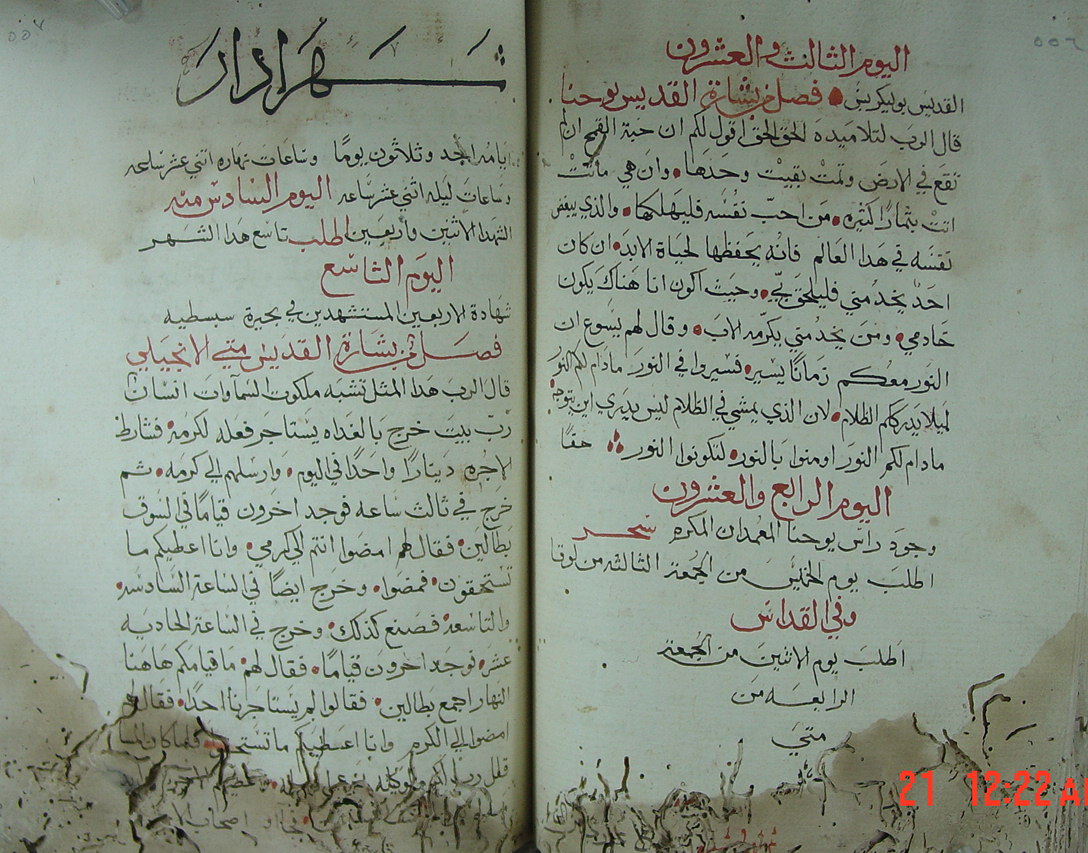 ٥٥٦
اليوم الثالث والعشرون
القديس بوليكربس فصل من بشارة القديس يوحنا
قال الرب لتلاميده الحق الحق اقول لكم ان حبة القمح ان لم
تقع في الارض وتمت بقيت وحدها وان هي ماتت
اتت بثمار كثيره من احب نفسه فليهلكها والدي يبغض
نفسه في هدا العالم فانه يحفظها لحياة الابد ان كان
احد يخدمني فليلحق بي وحيث اكون انا هناك يكون
خادمي ومن يخدمني يكرمه الاب وقال لهم يسوع ان
النور معكم زمانا يسير فسيروا في النور مادام لكم النور
ليلا يدرككم الظلام لان الدي يمشي في الظلام ليس يدري اين يتوجه
مادام لكم النور اومنوا بالنور لتكونوا النور حقا
اليوم الرابع والعشرون
وجود راس يوحنا المعمدان المكرم سحر
اطلب يوم الخميس من الجمعة الثالثه من لوقا
وفي القداس
اطلب يوم الاثنين من الجمعة
الرابعه من
متي
٥٥٧
شهر ادار
ايامه احد وثلاثون يوما وساعات نهاره اثني عشر ساعه
وساعات ليله اثني عشر ساعه اليوم السادس منه
الشهدا الاثنين واربعين اطلب تاسع هدا الشهر
اليوم التاسع
شهادة الاربعين المستشهدين في بحيرة سبسطيه
فصل من بشارة القديس متي الانجيلي
قال الرب هدا المثل تشبه ملكوت السماوات انسانا
رب بيت خرج بالغداه يستاجر فعله لكرمه فشارط
الاجره دينارا واحدا في اليوم وارسلهم الي كرمه ثم
خرج في ثالث ساعه فوجد اخرون قياما في السوق
بطالين فقال لهم امضوا انتم الي كرمي وانا اعطيكم ما
تستحقون فمضوا وخرج ايضا في الساعة السادسه
والتاسعه فصنع كذلك وخرج في الساعة الحاديه
عشره فوجد اخرون قياما فقال لهم ما قيامكم هاهنا
النهار اجمع بطالين فقالوا لم يستاجرنا احد فقال لهم
امضوا الي الكرم وانا اعطيكم ما تستحقون فلما كان المسا
قال رب الكرم لوكيله
اصحاب
21 12:22 A